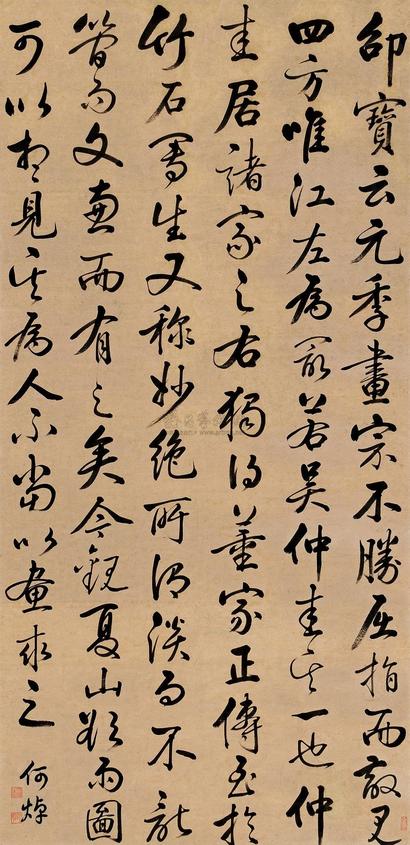 邵寶云元季畫宗不勝屈指而散見
四方唯江左為最若吳仲圭其一也仲
圭居諸家之右獨得董家正傳至於
竹石寫生又稱妙絕所謂淡而不厭
簡而文兼而有之矣今觀夏山欲雨圖
可以想見其為人不當以畫求之
何焯